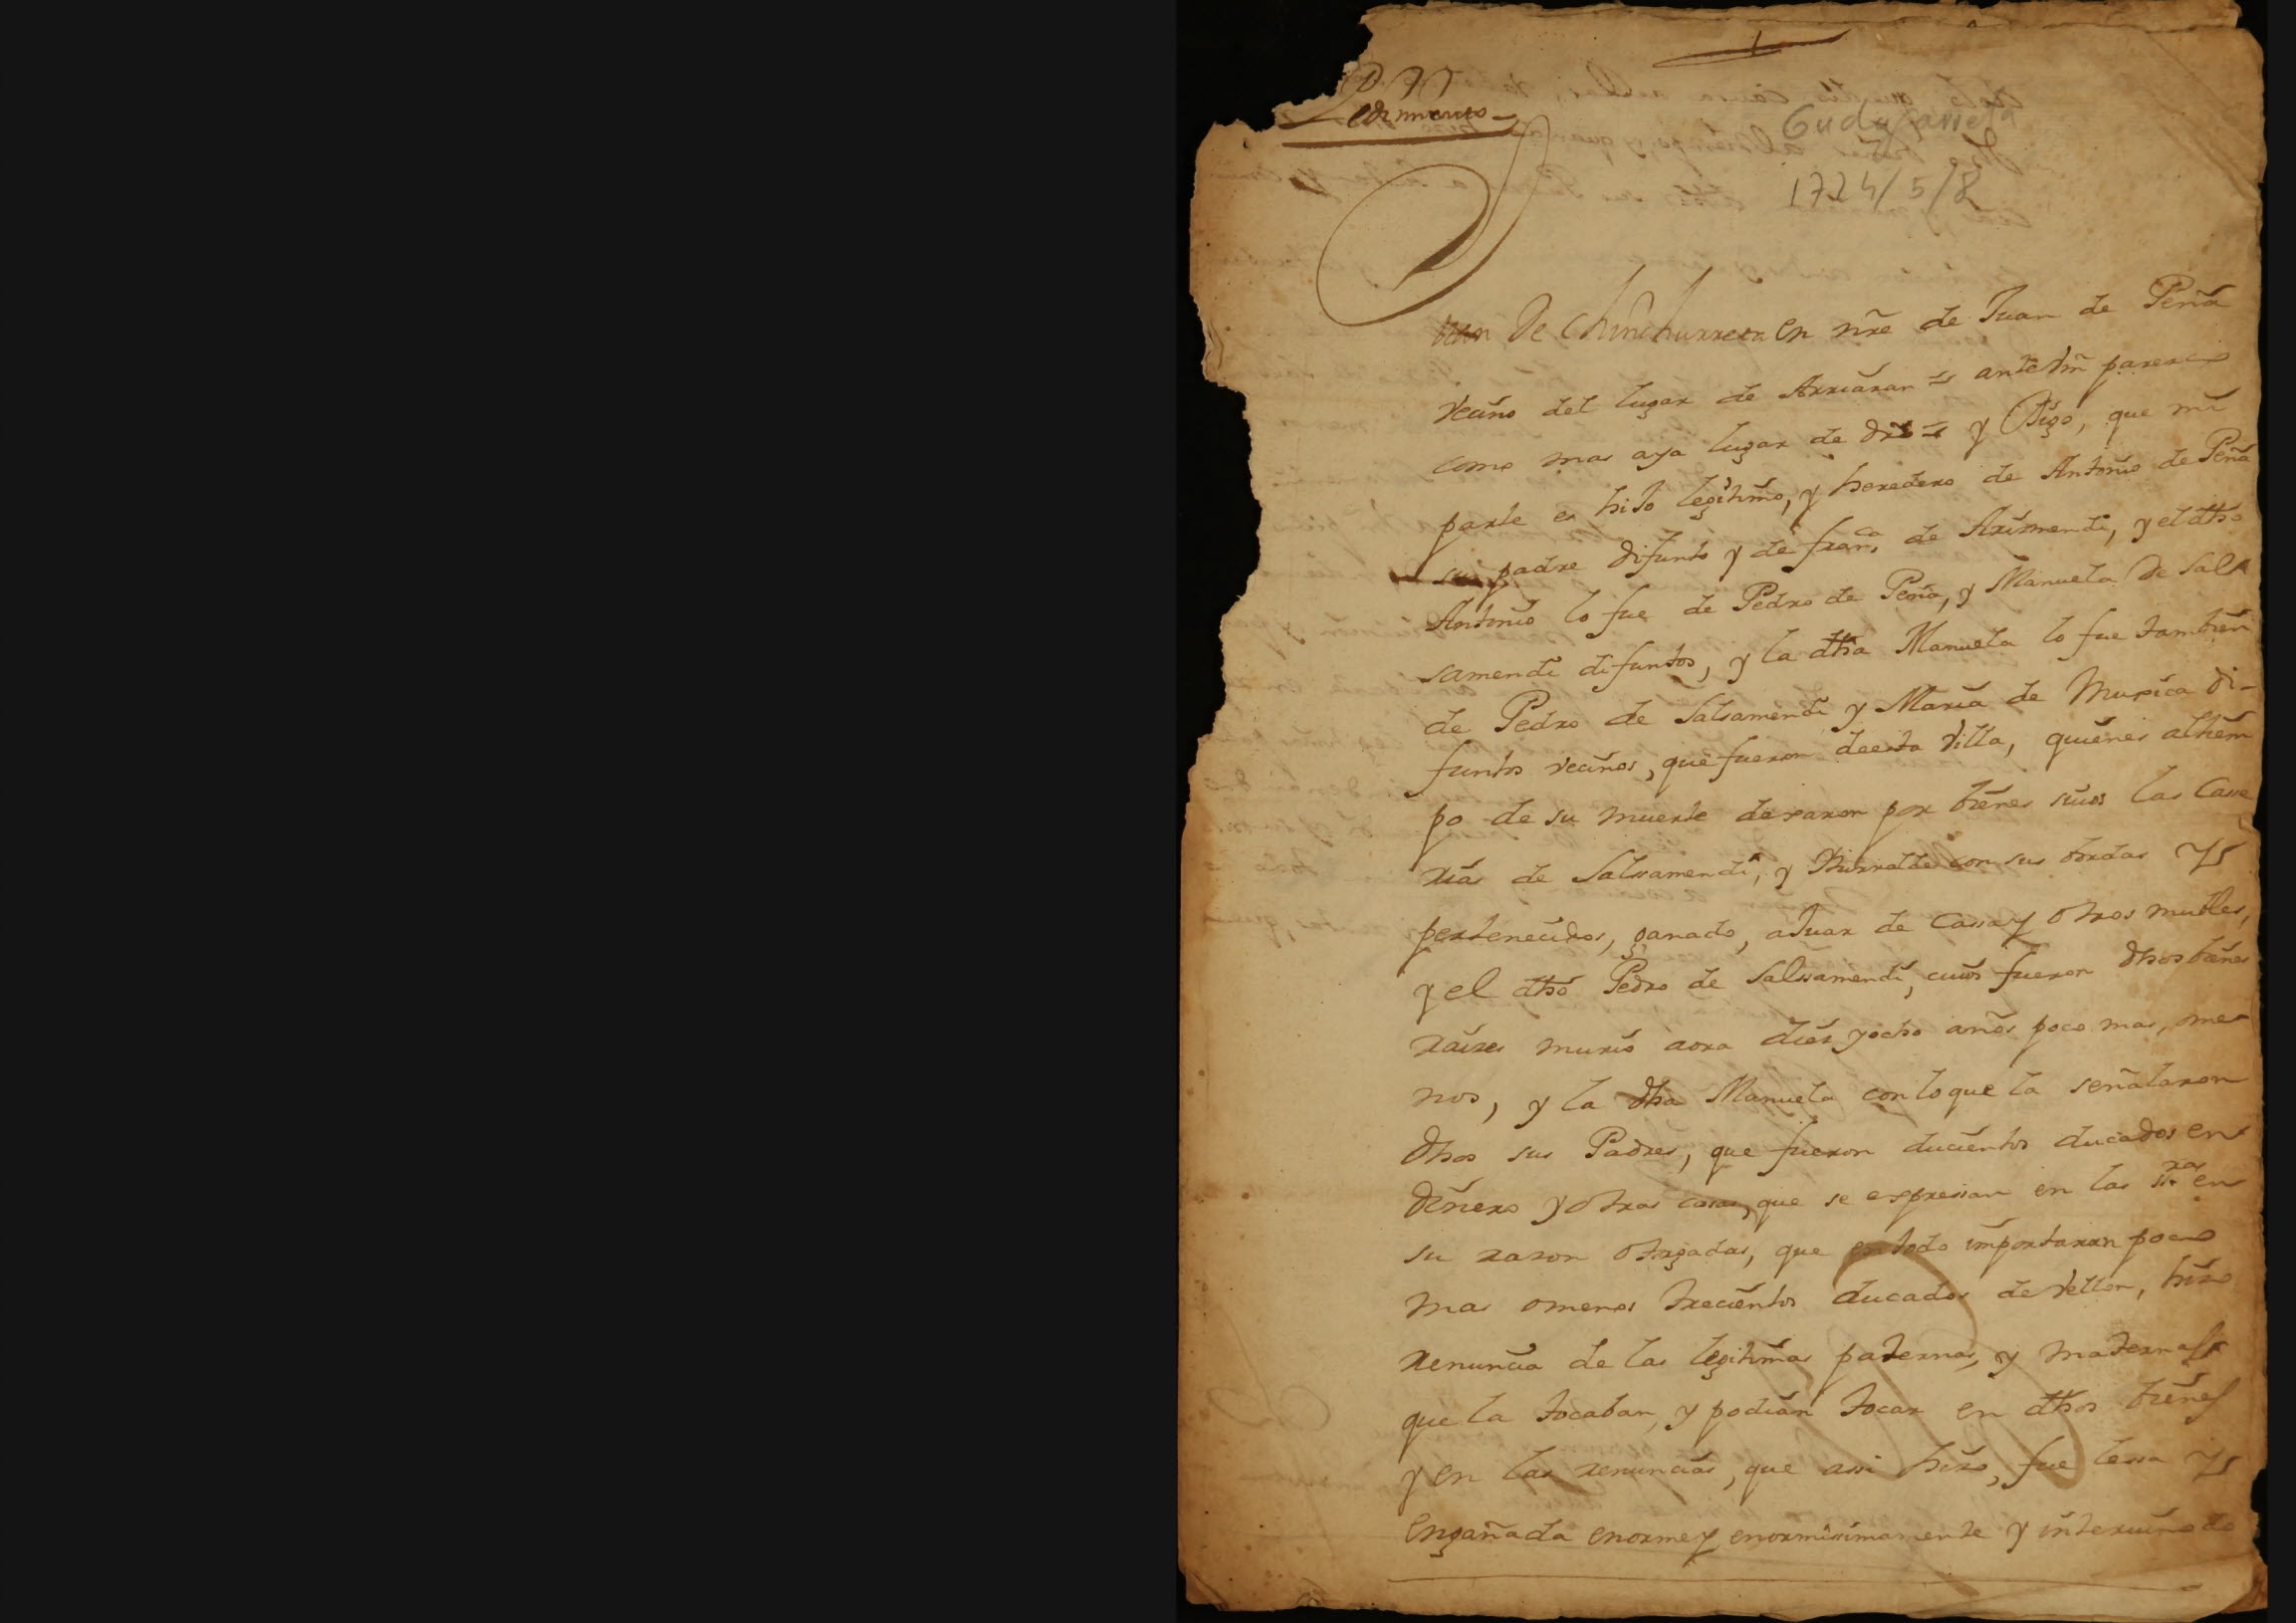 Pedimento
Gudugarreta
1724/5/8
Juan De Chinchurreta en nr̃e de Juan de Peña
vecino del lugar de Arriaran = ante Vm̃ parezco
como mas aya lugar de dr̃o = y Digo, que mi
parte es hiJo legitimo, y heredero de Antonio de Peña
su padre difunto y de franca de Arismendi, y el dho
Antonio lo fue de Pedro de Peña, y Manuela de Sal
samendi difuntos, y la dha Manuela lo fue tambien
de Pedro de Salsamendi y Maria de Muxica di-
funtos vecinos, que fueron de esta Villa, quienes altiem
po de su muerte dexaron por bienes suios las Case
rias de Salsamendi, y Yturralde con sus bordas y
pertenecidos, ganado, aJuar de Cassa y otros mubles,
y el dho Pedro de Salssamendi, cuios fueron dhos bienes
raizes murio aora diez yocho años poco mas, ome-
nos, y la dha Manuela con loque la señalaron
dhos sus Padres, que fueron ducientos ducados en
dinero y otras cosas, que se expressan en las ssras en
su razon otrgadas, que en todo importaran poco
mas omenos trecientos ducados de Vellon, hizo
renuncia de las legitimas paternas, y maternas
que la tocaban, y podian tocar en dhos bienes
y en las renuncias, que assi hizo, fue lessa y
engañada enorme y enormissimamente y interuino do